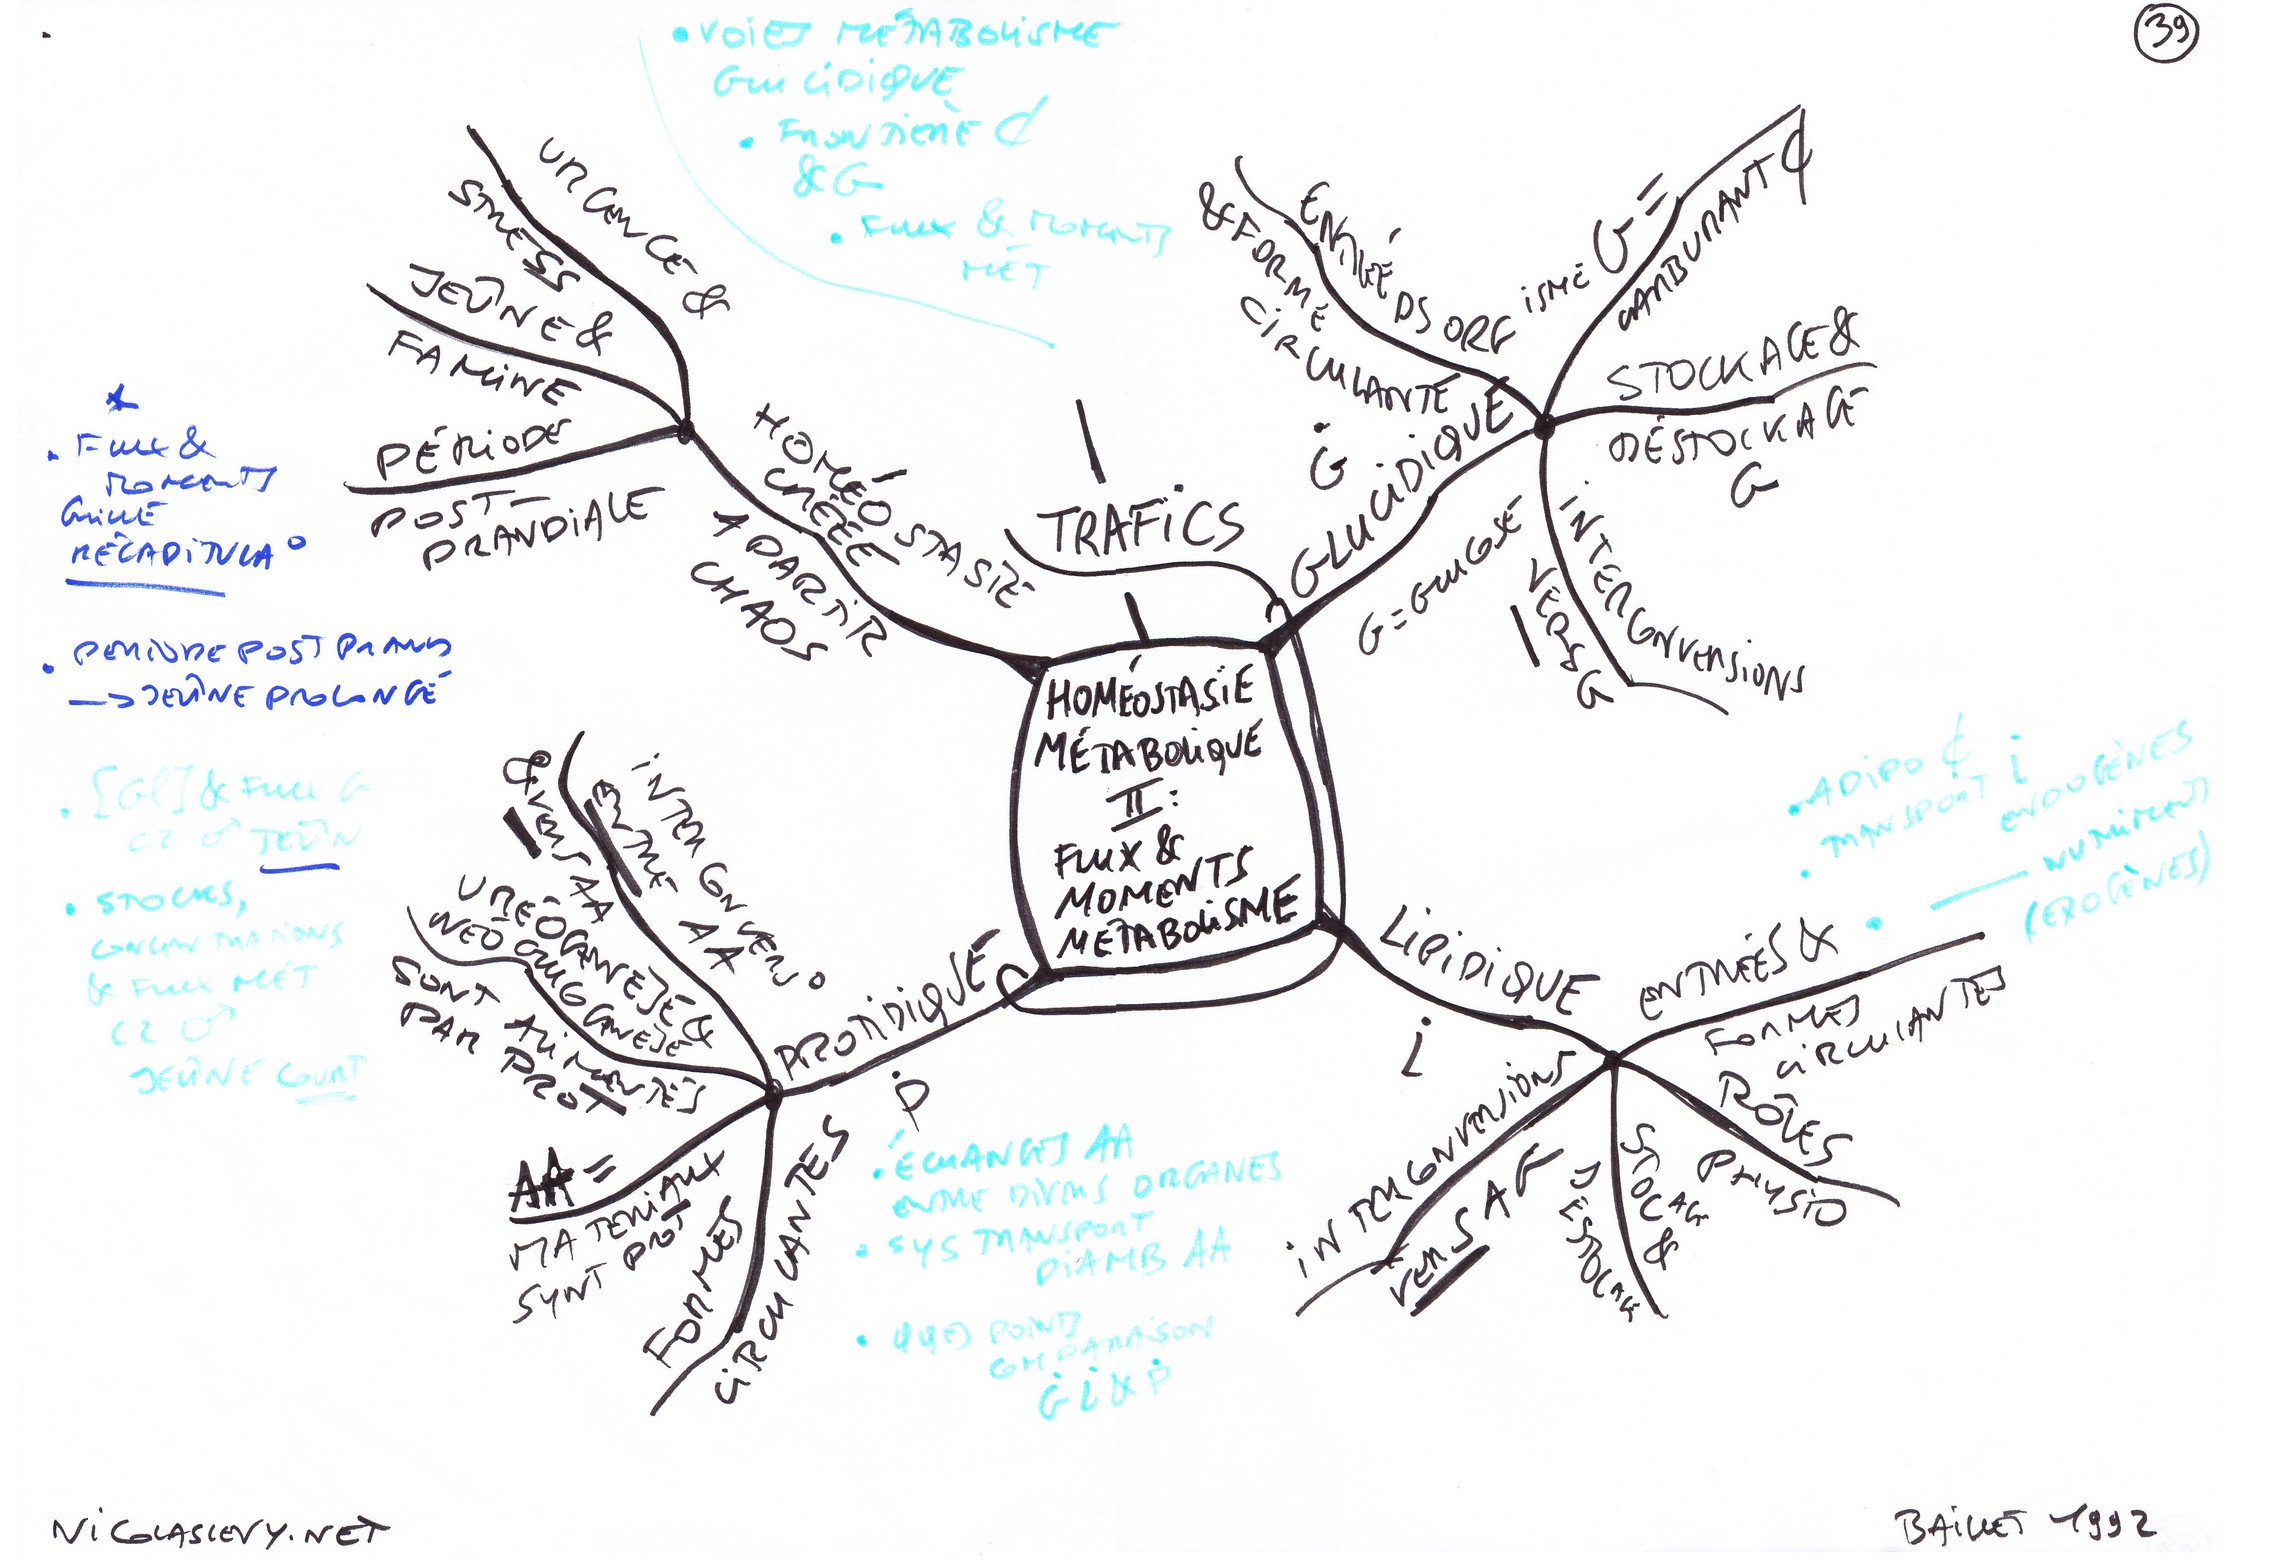 39
• VOIES MÉTABOLISME
GLUCIDIQUE
• FRONTIÈRE ₵
& G
• FLUX & MOMENTS
MÉT
URGENCE &
STRESS
JEÛNE &
FAMINE
PÉRIODE
POST-
PRANDIALE
HOMÉOSTASIE
CRÉÉE
À PARTIR
CHAOS
TRAFICS
ENTRÉE DS ORGANISME
& FORME
CIRCULANTE
G =
CARBURANT ₵
STOCKAGE &
DÉSTOCKAGE
G
GLUCIDIQUE
Ġ
G = GLUCOSE
INTERCONVERSIONS
VERS G
HOMÉOSTASIE
MÉTABOLIQUE
II :
FLUX &
MOMENTS
MÉTABOLISME
• FLUX &
MOMENTS
GRILLE
RÉCAPITULA°
• PERIODE POST PRAND
→ JEÛNE PROLONGÉ
• [Gl] & FLUX G
CZ ♂ JEÛN
• STOCKS,
CONCENTRATIONS
& FLUX MÉT
CZ ♂
JEÛNE COURT
INTERCONVERS°
ENTRE AA
& VERS AA
URÉOGENÈSE &
NÉOGLUCOGENÈSE
SONT ALIMENTÉS
PAR PROT
AA =
MATERIAUX
SYNT PROT
FORMES
CIRCULANTES
PROTIDIQUE
Ṗ
• ÉCHANGES AA
ENTRE DIVERS ORGANES
• SYS TRANSPORT
MEMB AA
• QQES POINTS
COMPARAISON
Ġ L̇ & Ṗ
LIPIDIQUE
L̇
ENTRÉES &
FORMES
CIRCULANTES
RÔLES
PHYSIO
STOCAG &
DESTOCAGE
INTERCONVERSIONS
VERS AG
• ADIPO ₵
• TRANSPORT L̇
ENDOGÈNES
• —— NUTRIMENTS
(EXOGÈNES)
NICOLASLEVY.NET
BAILLET 1992